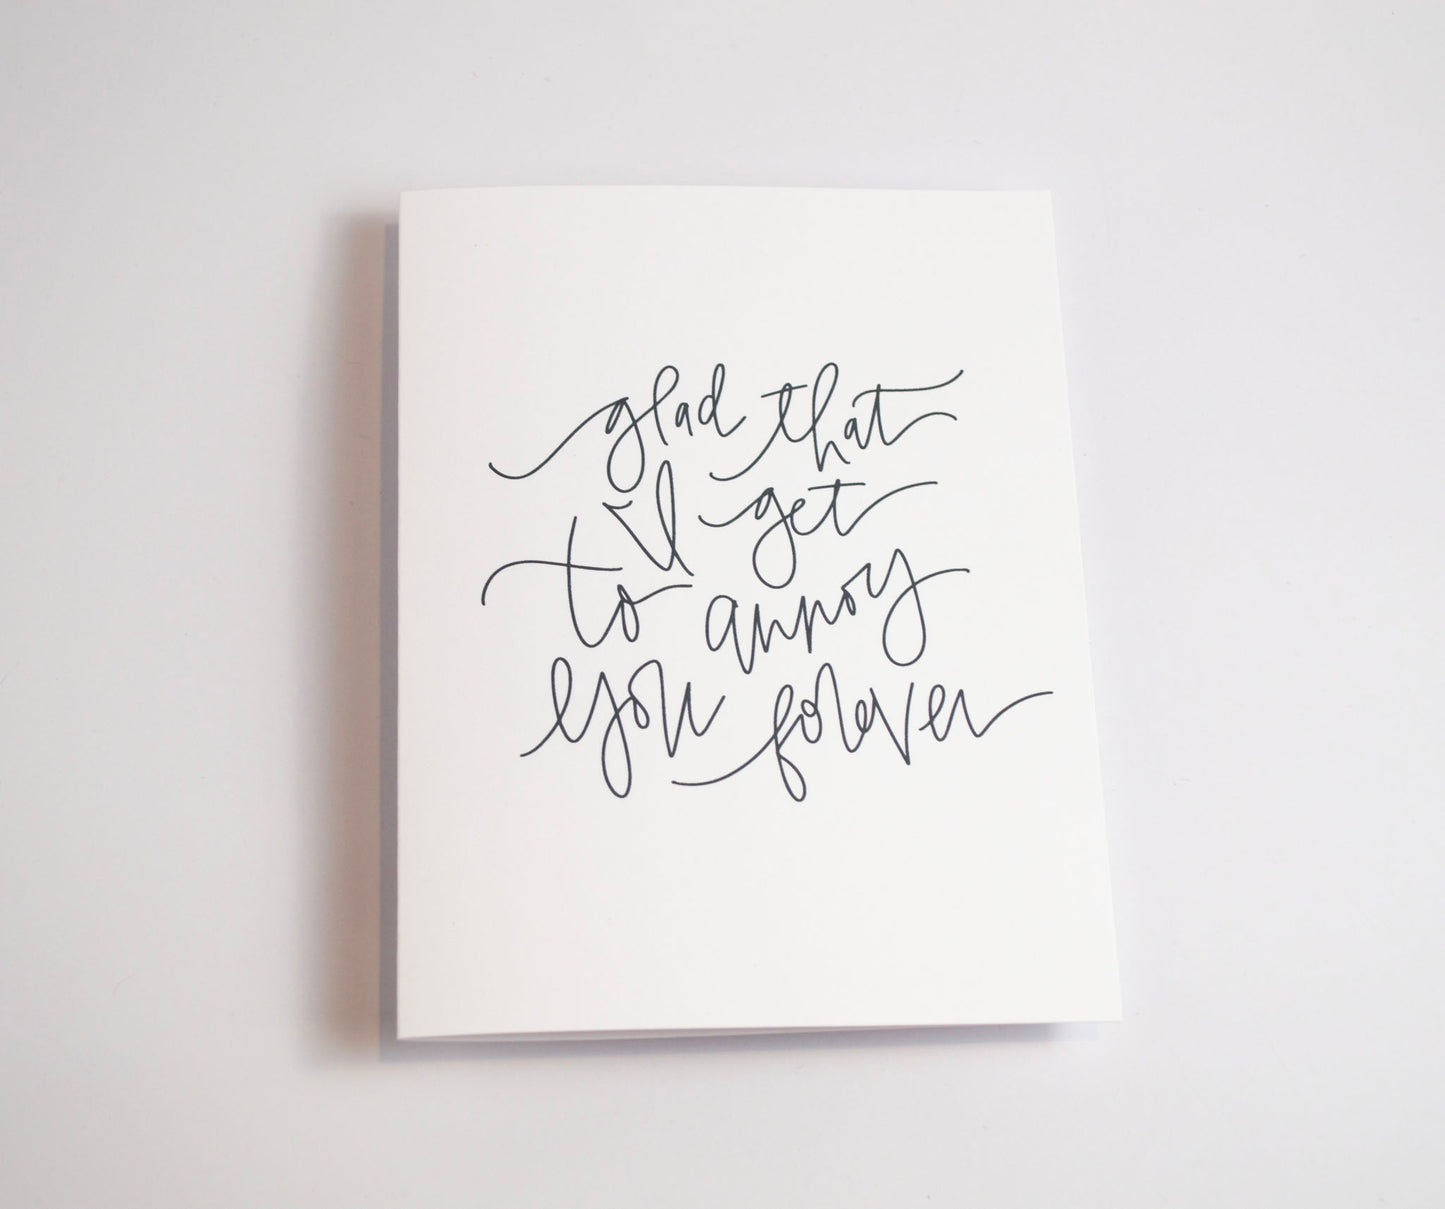 glad that
i'l get
to annoy
you forever